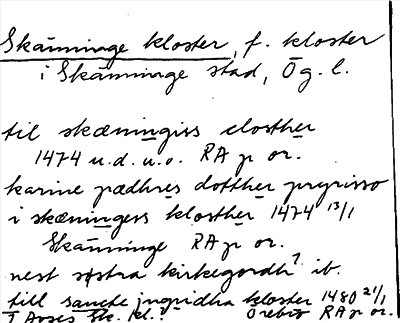 Skänninge kloster, f. kloster
i Skänninge stad, Ög. l.
til skæningiss closther
1474 u.d. u.o. RA p or.
karine pædhres dotther pryrisso
i skæningess klosther 1474 13/1
Skänninge RA p or.
nest systra kirkegordh ? ib.
till sancte ingridha kloster 1480 21/1
Örebro RA p or.